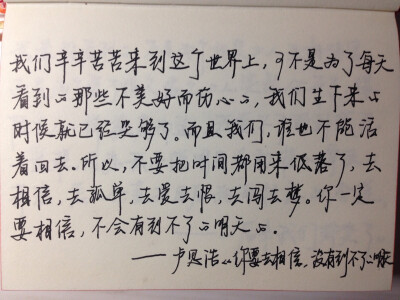 我们辛辛苦苦来到这个世界上，可不是为了每天
看到的那些不美好而伤心的，我们生下来的
时候就已经哭够了。而且我们，谁也不能活
着回去。所以，不要把时间都用来低落了，去
相信，去孤单，去爱去恨，去闯去梦。你一定
要相信，不会有到不了的明天的。
——卢思浩《你要去相信，没有到不了的明天